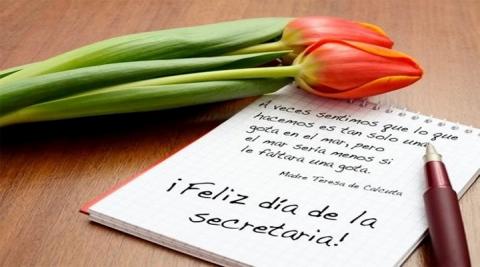 A veces sentimos que lo que
hacemos es tan solo una
gota en el mar, pero
el mar sería menos si
le faltara una gota.
Madre Teresa de Calcuta
¡Feliz día de la
secretaria!